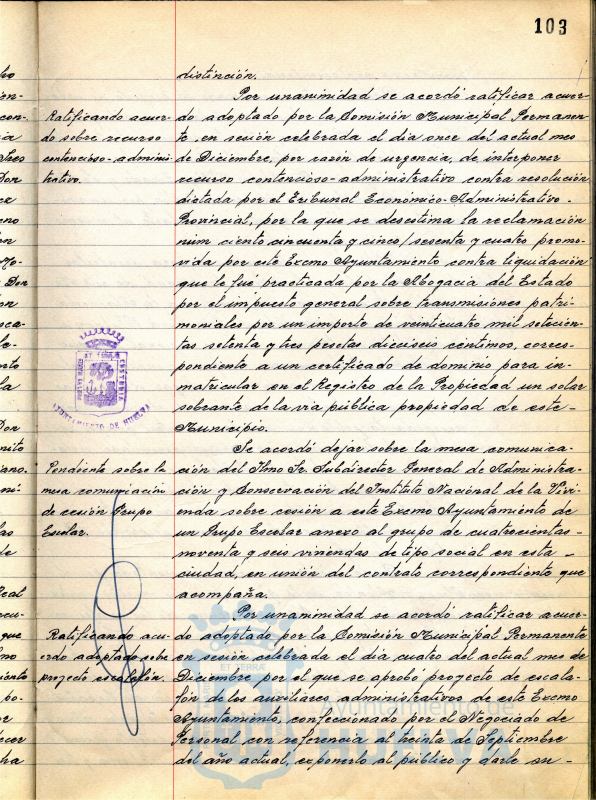 103
distinción.
Por unanimidad se acordó ratificar acuer-
do adoptado por la Comisión Municipal Permanen-
te, en sesión celebrada el dia once del actual mes
de Diciembre, por razón de urgencia, de interponer
recurso contencioso-administrativo contra resolución
dictada por el Tribunal Económico-Administrativo-
Provincial, por la que se desestima la reclamación
num ciento cincuenta y cinco/sesenta y cuatro promo-
vida por este Excmo Ayuntamiento contra liquidación
que le fué practicada por la Abogacia del Estado
por el impuesto general sobre transmisiones patri-
moniales por un importe de veinticuatro mil setecien-
tas setenta y tres pesetas dieciseis centimos, corres-
pondiente a un certificado de dominio para in-
matricular en el Registro de la Propiedad un solar
sobrante de la via pública propiedad de este-
Municipio.
Se acordó dejar sobre la mesa comunica-
ción del Ilmo Sr. Subdirector General de Administra-
ción y Conservación del Instituto Nacional de la Vivi-
enda sobre cesión a este Excmo Ayuntamiento de
un Grupo Escolar anexo al grupo de cuatrocientas-
noventa y seis viviendas de tipo social en esta -
ciudad, en unión del contrato correspondiente que
acompaña.
Por unanimidad se acordó ratificar acuer-
do adoptado por la Comisión Municipal Permanente
en sesión celebrada el dia cuatro del actual mes de
Diciembre por el que se aprobó proyecto de escala-
fón de los auxiliares administrativos de este Excmo
Ayuntamiento, confeccionado por el Negociado de
Personal con referencia al treinta de Septiembre
del año actual, exponerlo al público y darle su-
Ratificando acuer-
do sobre recurso
contencioso-adminis-
trativo.
AYUNTAMIENTO DE HUELVA
Pendiente sobre la
mesa comunicación
de cesión Grupo
Escolar.
Ratificando acu-
erdo adoptado sobre
proyecto escalafón.
Ayuntamiento de
HUELVA